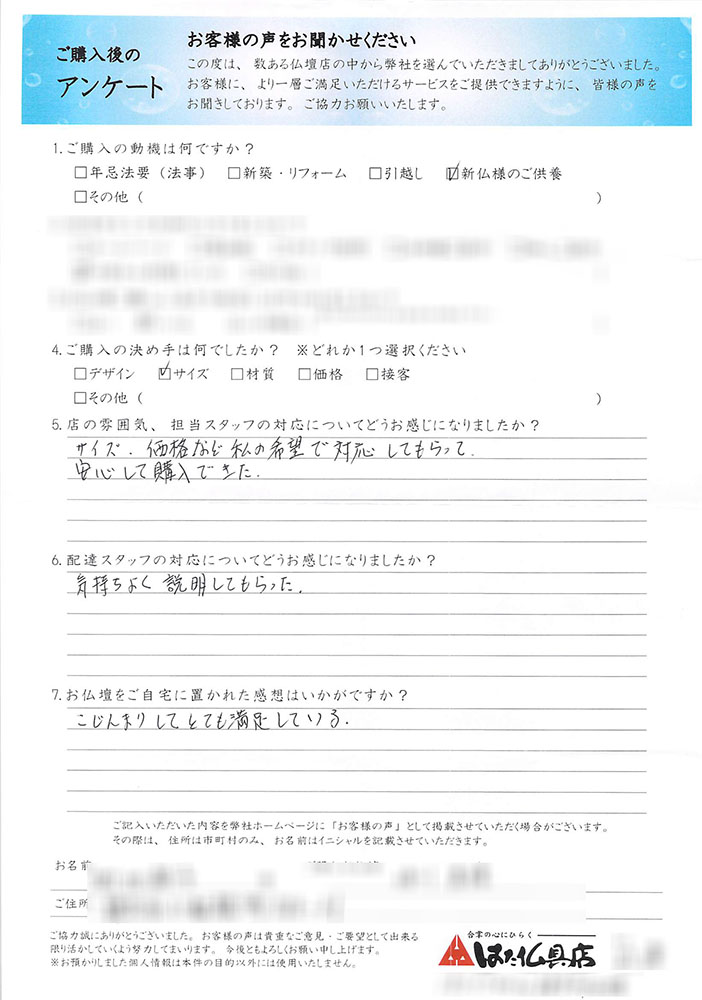 ご購入後の
アンケート
お客様の声をお聞かせください
この度は、数ある仏壇店の中から弊社を選んでいただきましてありがとうございました。
お客様に、より一層ご満足いただけるサービスをご提供できますように、皆様の声を
お聞きしております。ご協力お願いいたします。
1.ご購入の動機は何ですか？
□年忌法要（法事） □新築・リフォーム □引越し ☑新仏様のご供養
□その他（ ）
4.ご購入の決め手は何でしたか？ ※どれか1つ選択ください
□デザイン ☑サイズ □材質 □価格 □接客
□その他（ ）
5.店の雰囲気、担当スタッフの対応についてどうお感じになりましたか？
サイズ．価格など私の希望で対応してもらって．
安心して購入できた．
6.配達スタッフの対応についてどうお感じになりましたか？
気持ちよく説明してもらった．
7.お仏壇をご自宅に置かれた感想はいかがですか？
こじんまりしてとても満足している．
ご記入いただいた内容を弊社ホームページに「お客様の声」として掲載させていただく場合がございます。
その際は、住所は市町村のみ、お名前はイニシャルを記載させていただきます。
お名前
ご住所
ご協力誠にありがとうございました。お客様の声は貴重なご意見・ご要望として出来る
限り活かしていくよう努力してまいります。今後ともよろしくお願い申し上げます。
※お預かりしました個人情報は本件の目的以外には使用いたしません。
合掌の心にひらく
はた仏具店